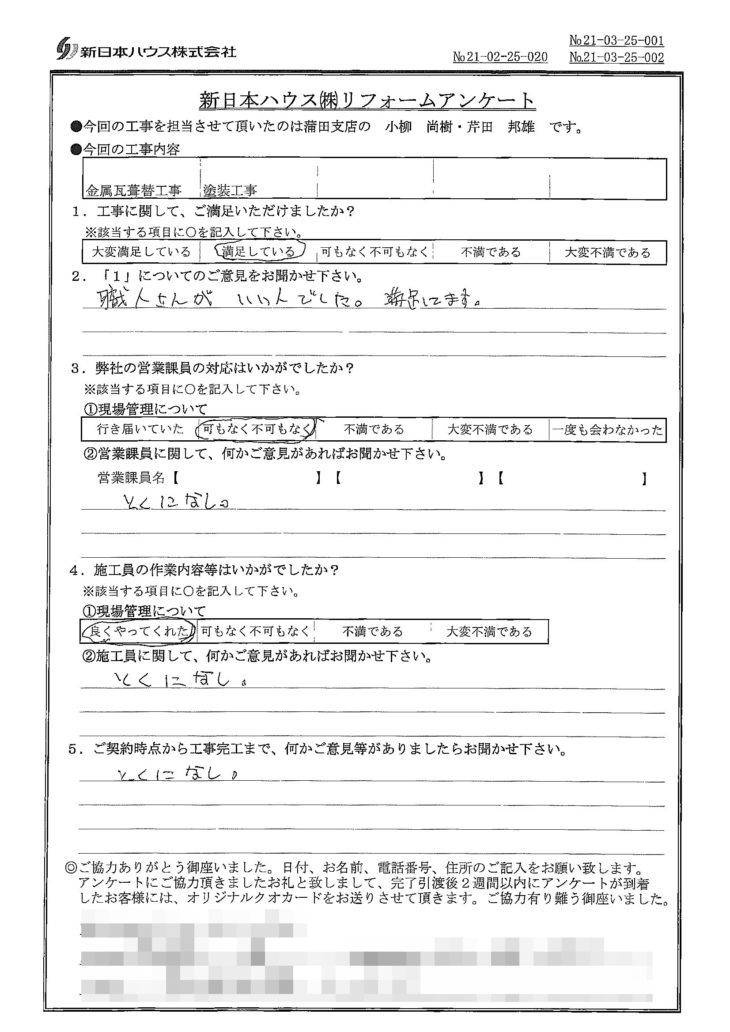 新日本ハウス株式会社
№21-03-25-001
№21-02-25-020 №21-03-25-002
新日本ハウス㈱リフォームアンケート
●今回の工事を担当させて頂いたのは蒲田支店の 小柳 尚樹・芹田 邦雄 です。
●今回の工事内容
金属瓦葺替工事 塗装工事
1．工事に関して、ご満足いただけましたか？
※該当する項目に○を記入して下さい。
大変満足している 満足している 可もなく不可もなく 不満である 大変不満である
2．「1」についてのご意見をお聞かせ下さい。
職人さんが いい人でした。満足してます。
3．弊社の営業課員の対応はいかがでしたか？
※該当する項目に○を記入して下さい。
①現場管理について
行き届いていた 可もなく不可もなく 不満である 大変不満である 一度も会わなかった
②営業課員に関して、何かご意見があればお聞かせ下さい。
営業課員名【 】【 】【 】
とくになし。
4．施工員の作業内容等はいかがでしたか？
※該当する項目に○を記入して下さい。
①現場管理について
良くやってくれた 可もなく不可もなく 不満である 大変不満である
②施工員に関して、何かご意見があればお聞かせ下さい。
とくになし。
5．ご契約時点から工事完工まで、何かご意見等がありましたらお聞かせ下さい。
とくになし。
◎ご協力ありがとう御座いました。日付、お名前、電話番号、住所のご記入をお願い致します。
アンケートにご協力頂きましたお礼と致しまして、完了引渡後２週間以内にアンケートが到着
したお客様には、オリジナルクオカードをお送りさせて頂きます。ご協力有り難う御座いました。